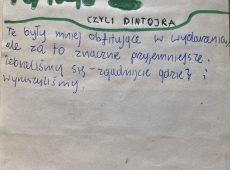 CZYLI DINTOJRA
Te były mniej obfitujące w wydarzenia,
ale za to znacznie przyjemniejsze.
Zebraliśmy się - zgadnijcie gdzie? i
wyruszyliśmy.